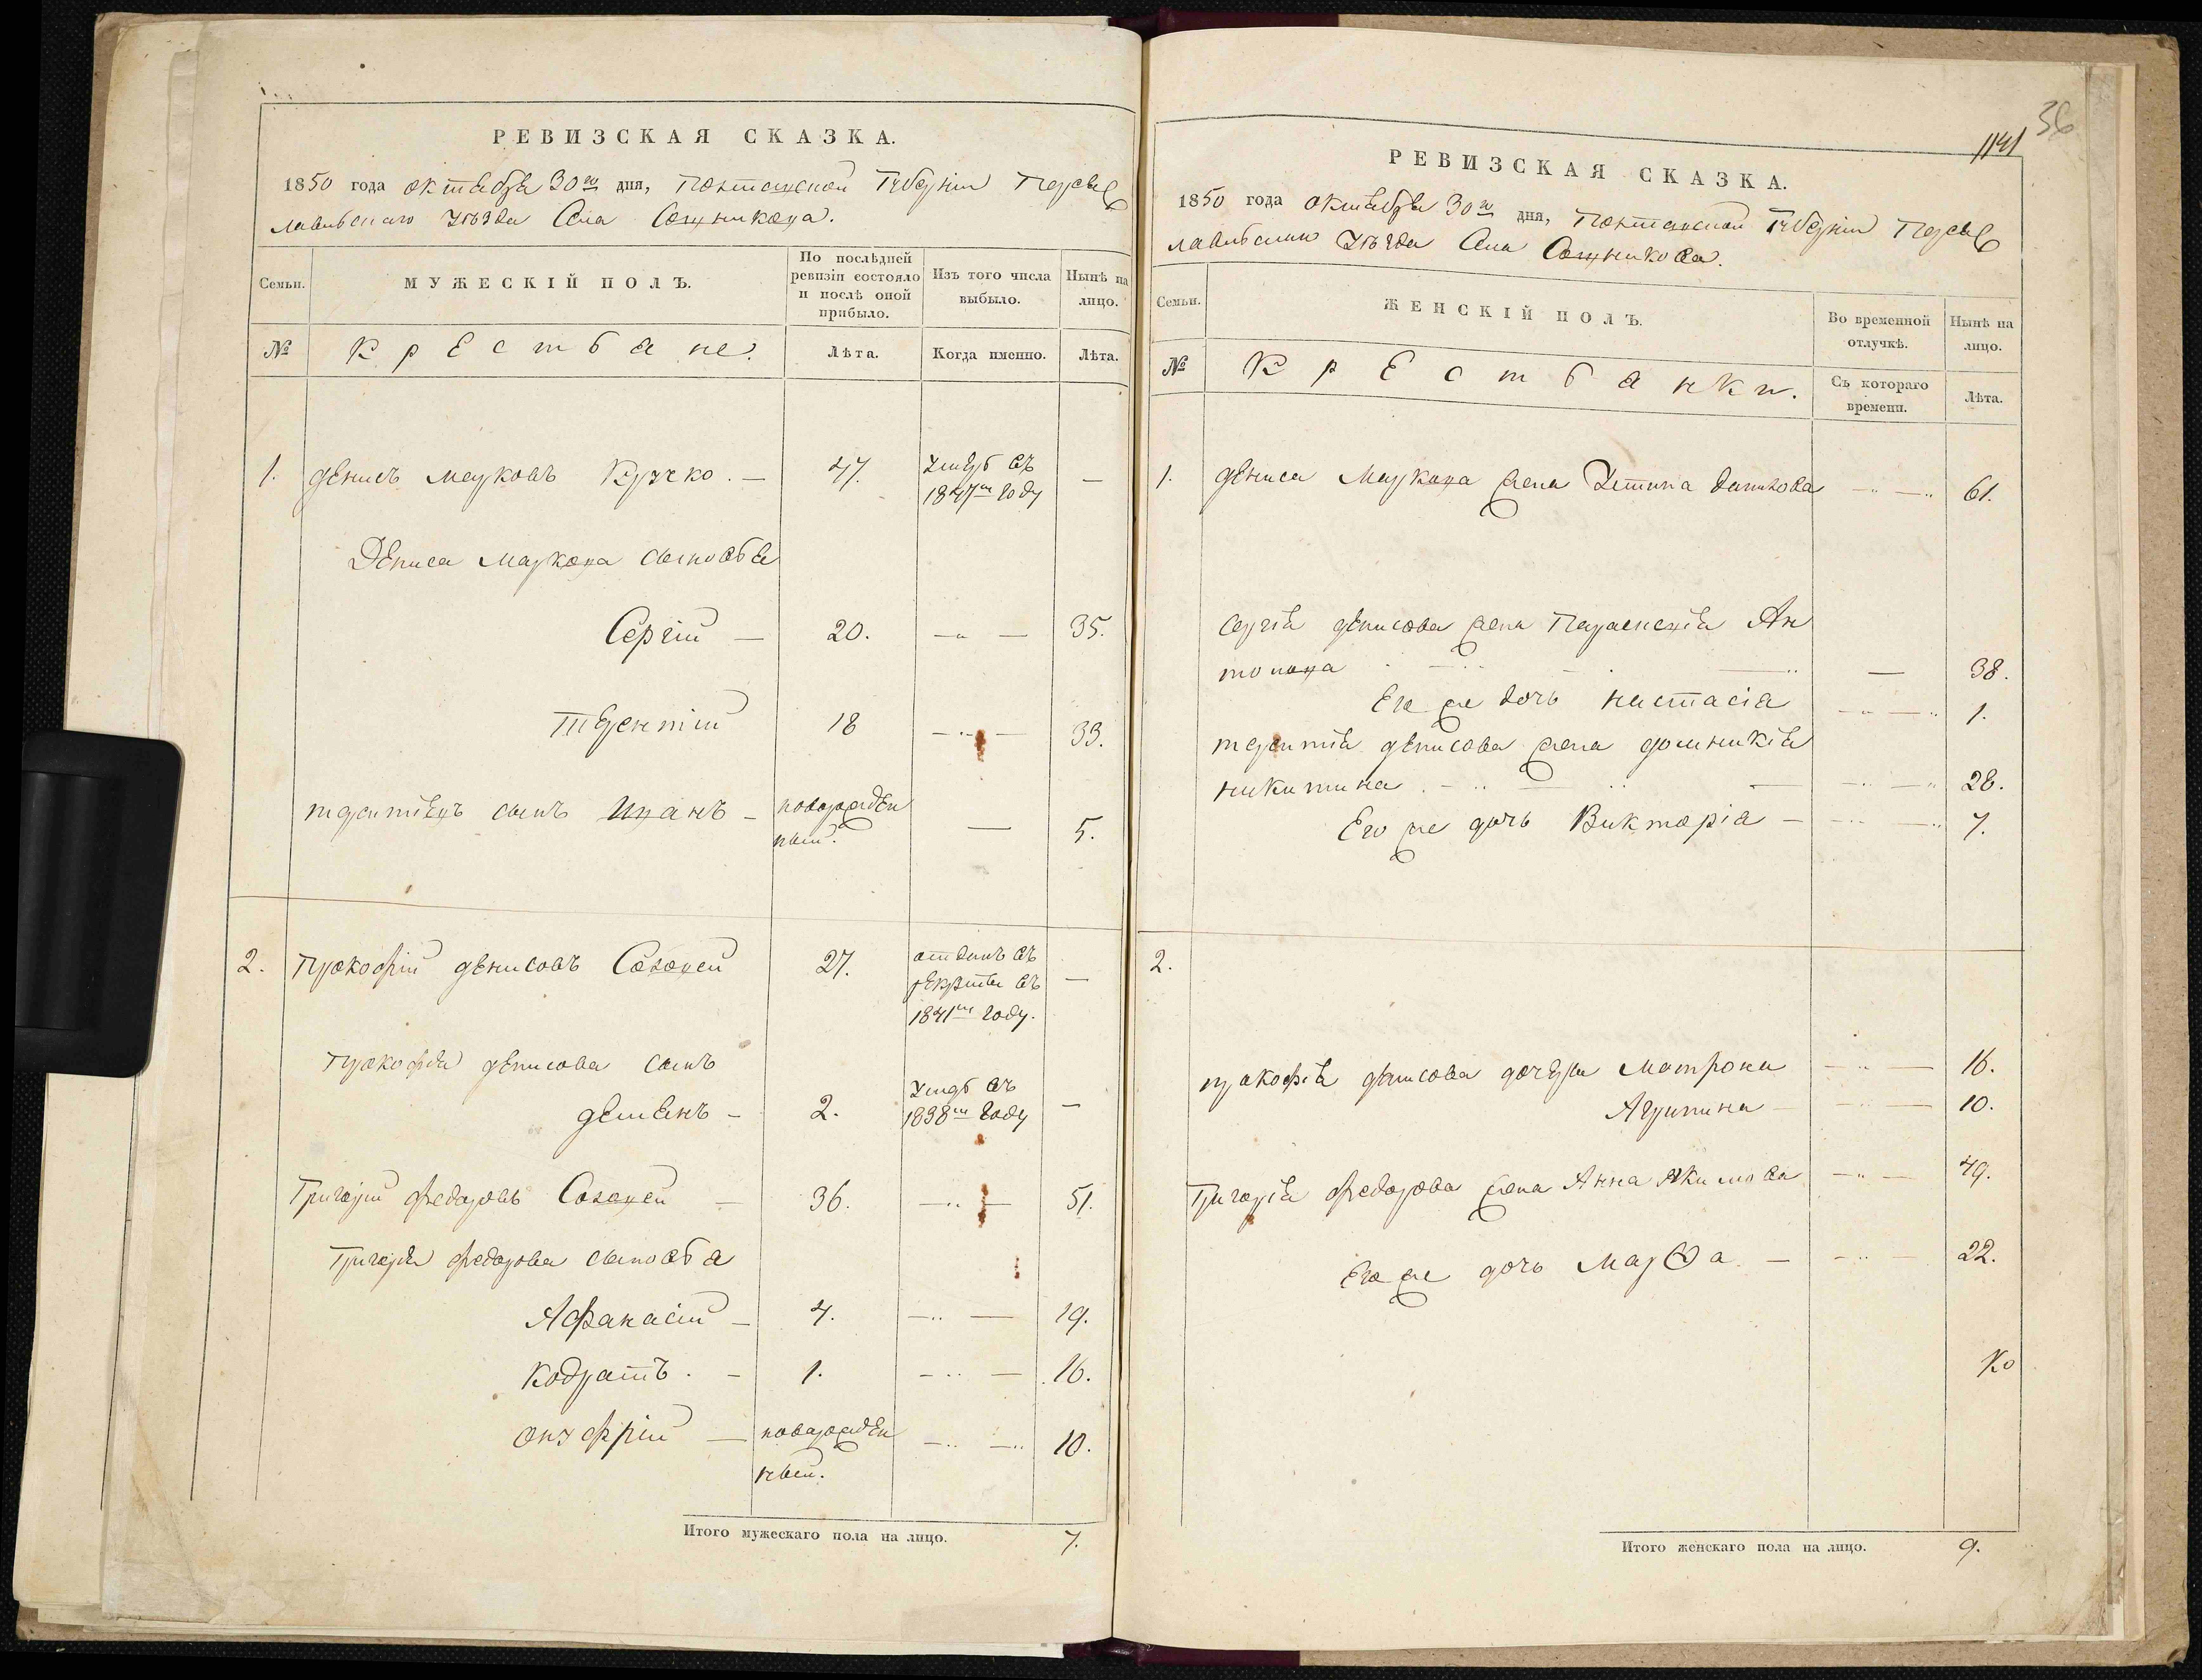 РЕВИЗСКАЯ СКАЗКА.
1850 года октября 30го дня, Полтавской Губерніи Переяс
лавльскаго Уѣзда Села Сошникова.
Семьи.
МУЖЕСКІЙ ПОЛЪ.
По послѣдней ревизіи состояло и послѣ оной прибыло.
Изъ того числа выбыло.
Нынѣ на лицо.
№
Крестьяне.
Лѣта.
Когда именно.
Лѣта.
1. Денисъ Марковъ Кручко. — 47. Умеръ въ — 
1847м Году
Дениса Маркова сыновья
Сергій — 20. — 35.
Терентій 18 — 33.
Терентіевъ сынъ Иванъ — новорожден — 5.
ный.
2. Прокофій Денисовъ 27. отданъ въ —
рекруты въ
1841м Году.
Прокофія Денисова сынъ
Демянъ — 2. Умеръ въ —
1838м Году
Григорій Федоровъ — 36. — 51.
Григорія Федорова сыновья
Афанасій — 4. — 19.
Кодратъ. — 1. — 16.
Онуфрій — новорожден — 10.
ный.
Итого мужескаго пола на лицо. 7.
36
1141
РЕВИЗСКАЯ СКАЗКА.
1850 года Октября 30го дня, Полтавской Губерніи Переяс
лавльскаго Уѣзда Села Сошникова.
Семьи.
ЖЕНСКІЙ ПОЛЪ.
Во временной отлучкѣ.
Нынѣ на лицо.
№
Крестьянки.
Съ котораго времени.
Лѣта.
1. Дениса Маркова жена Устина Данилова — 61.
Сергія Денисова жена Параскевія Ан
тонова — 38.
Его же дочь Настасія — 1.
Терентія Денисова жена Домникія
Никитина. — 28.
Его же дочь Викторія — 7.
2.
Прокофія Денисова дочери Матрона — 16.
Агрипина — 10.
Григорія Федорова жена Анна Якимова — 49.
Его же дочь Марѳа. — 22.
Ко
Итого женскаго пола на лицо. 9.